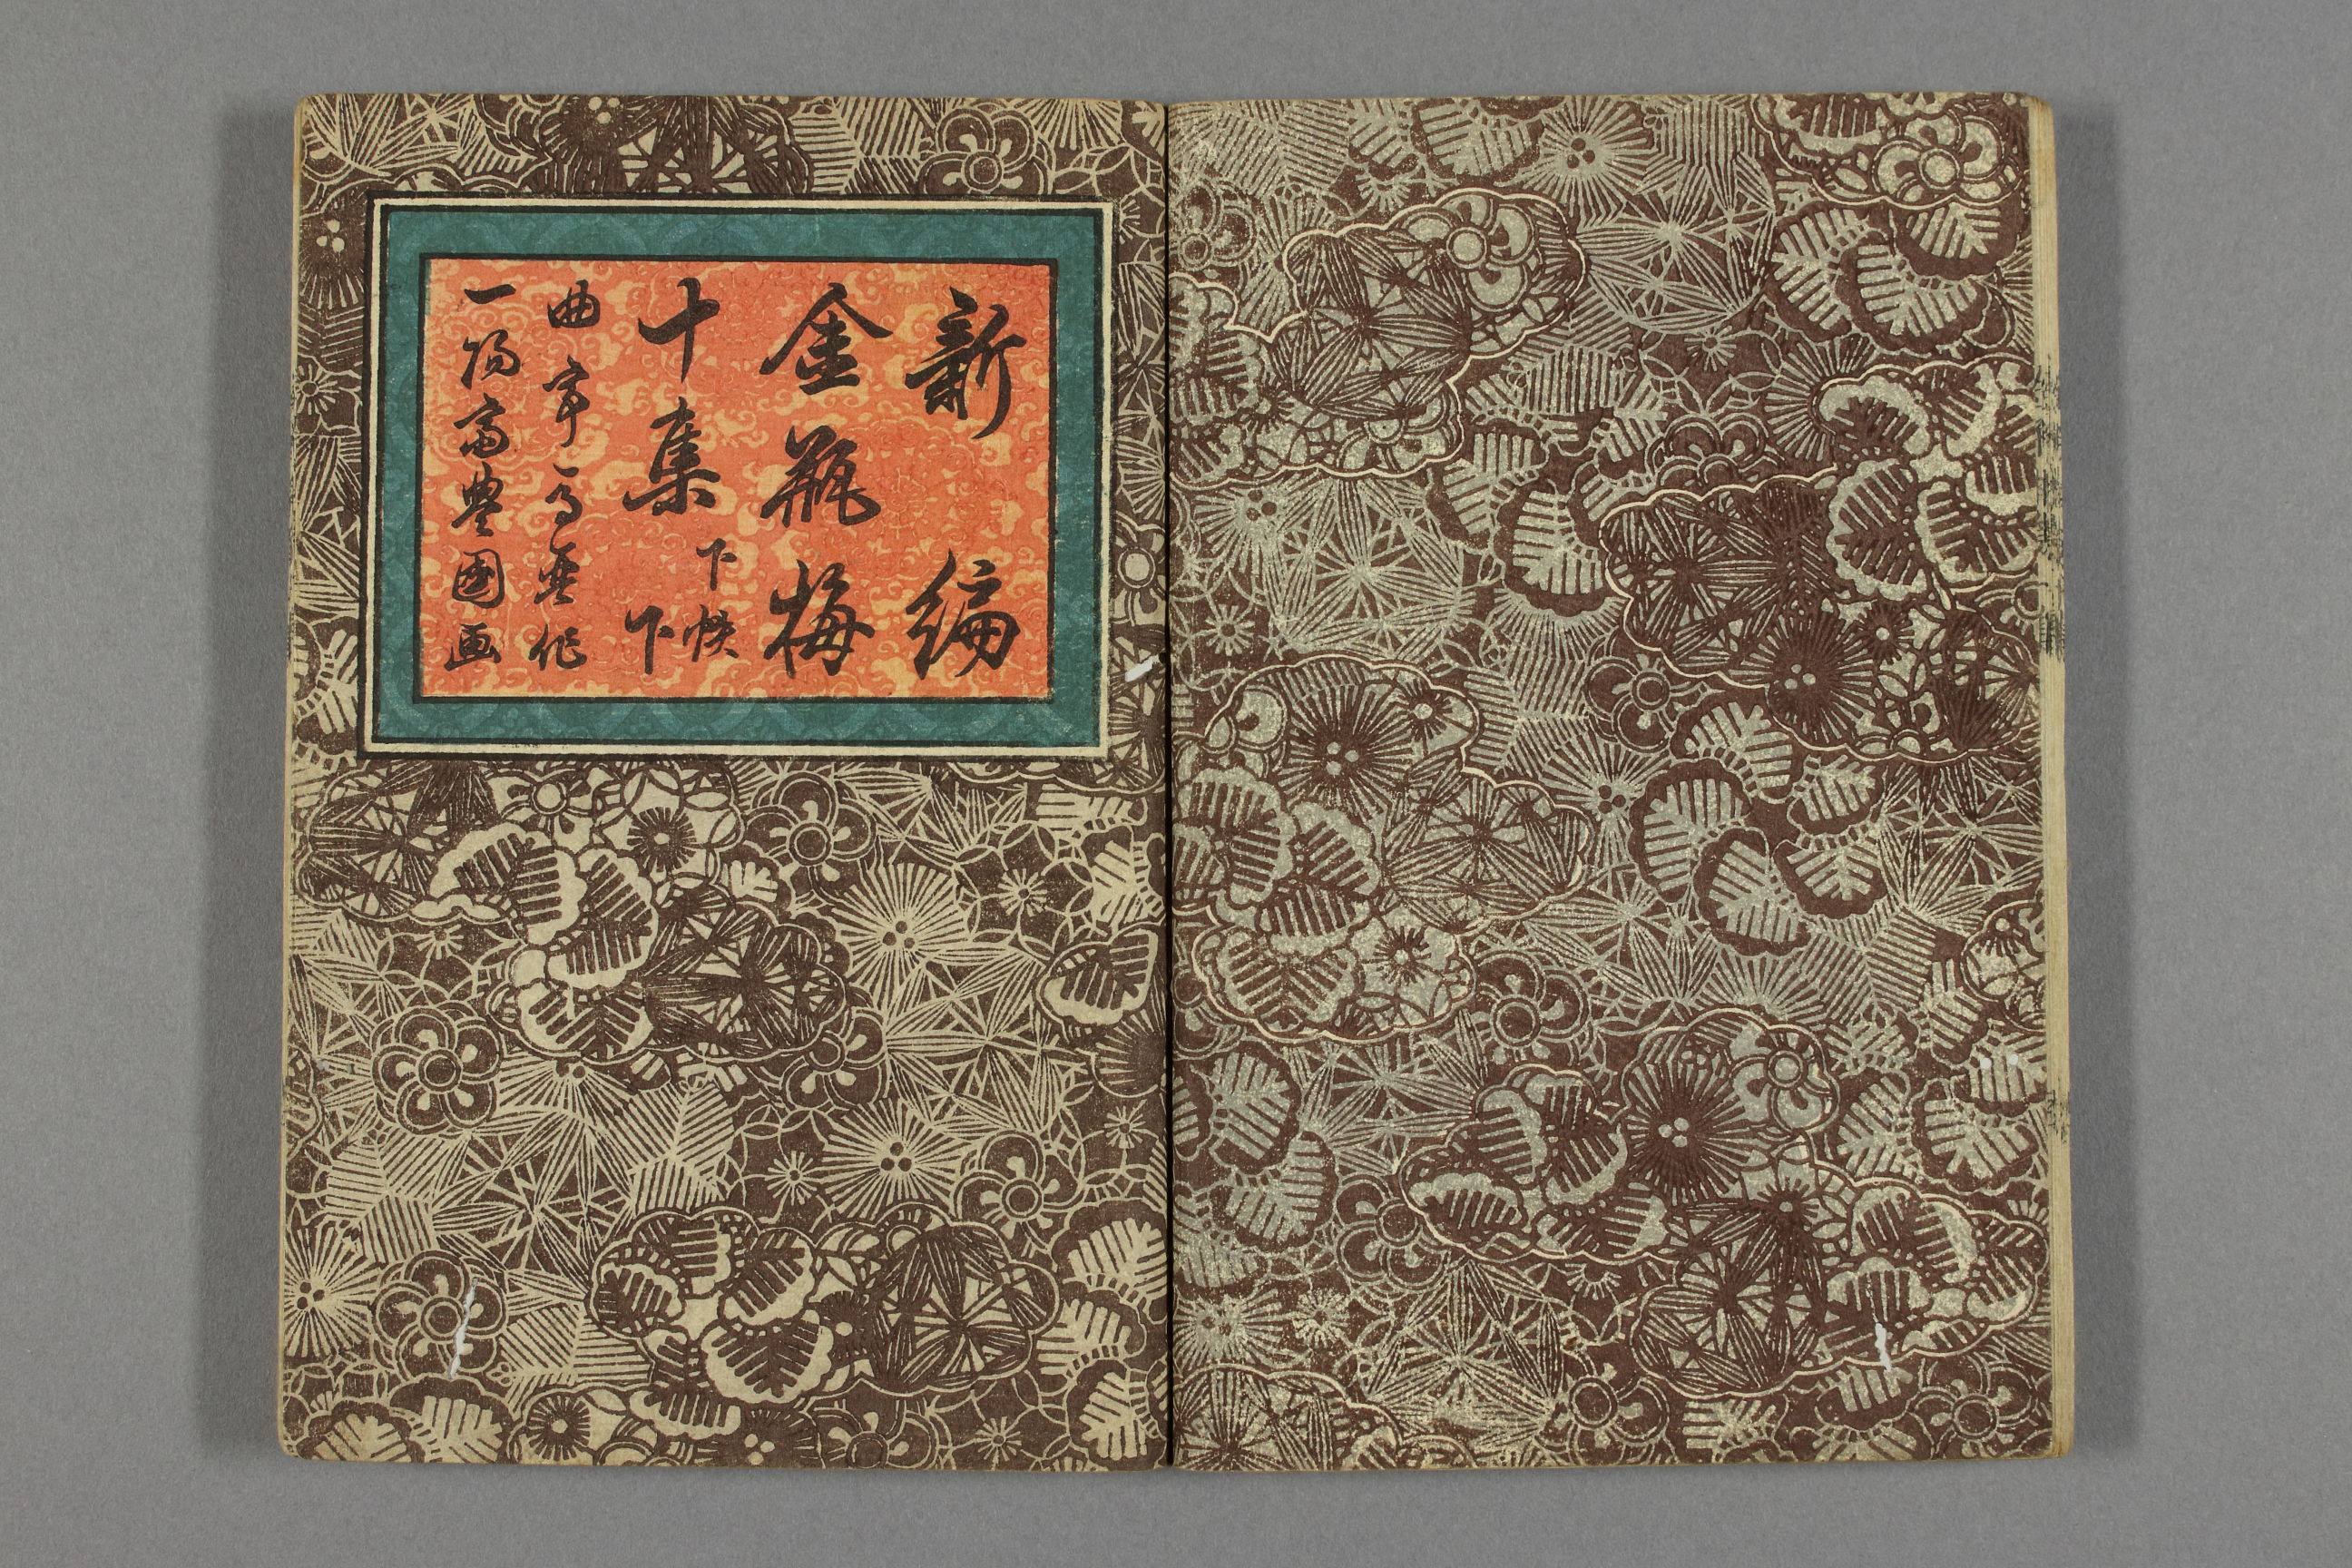 新編
金瓶梅
十集下帙下
曲亭馬琴作
一陽齋豊國画